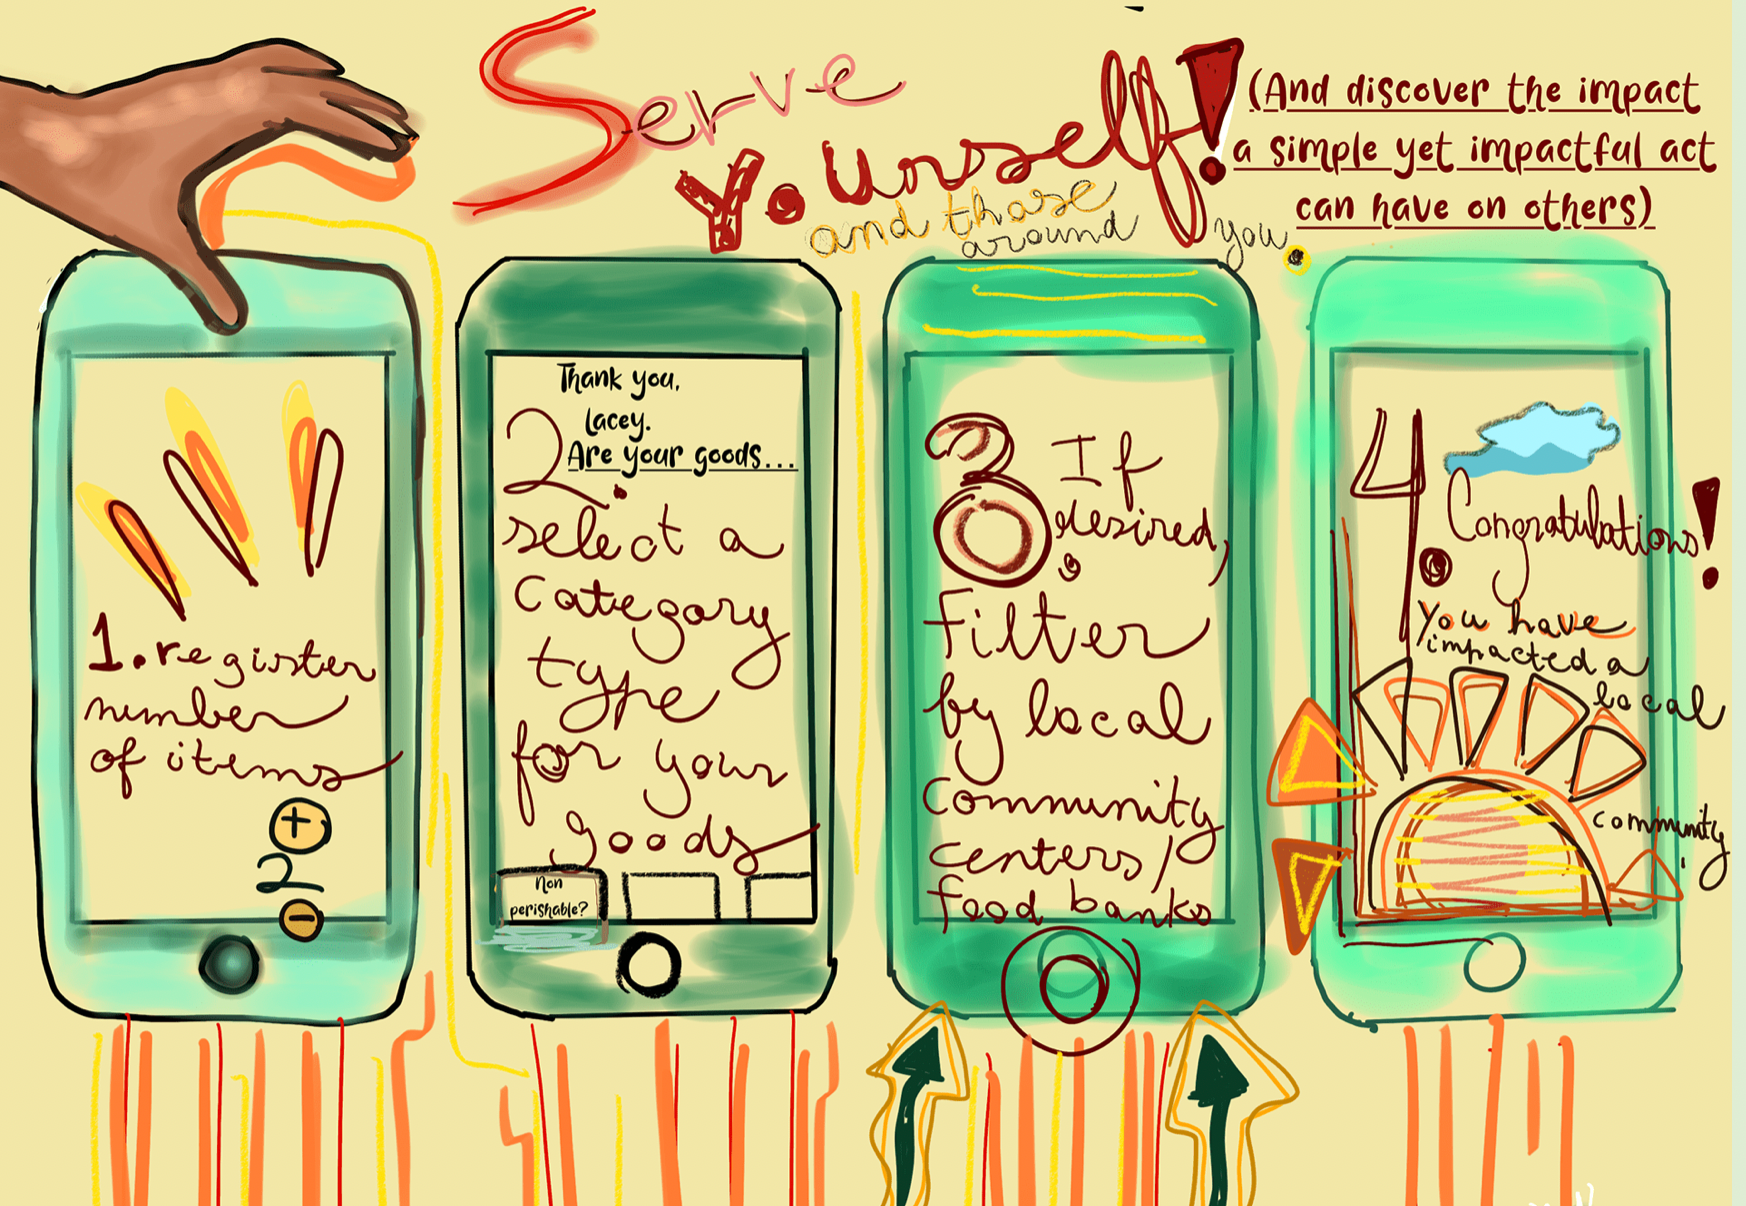 Serve
Yourself!
and those
around
you.
(And discover the impact
a simple yet impactful act
can have on others)
1. register
number
of items
+
2
−
Thank you,
Lacey.
Are your goods...
2.
select a
category
type
for your
goods
Non
perishable?
3. If
desired,
Filter
by local
community
centers/
food banks
4.
Congratulations!
You have
impacted a
local
community